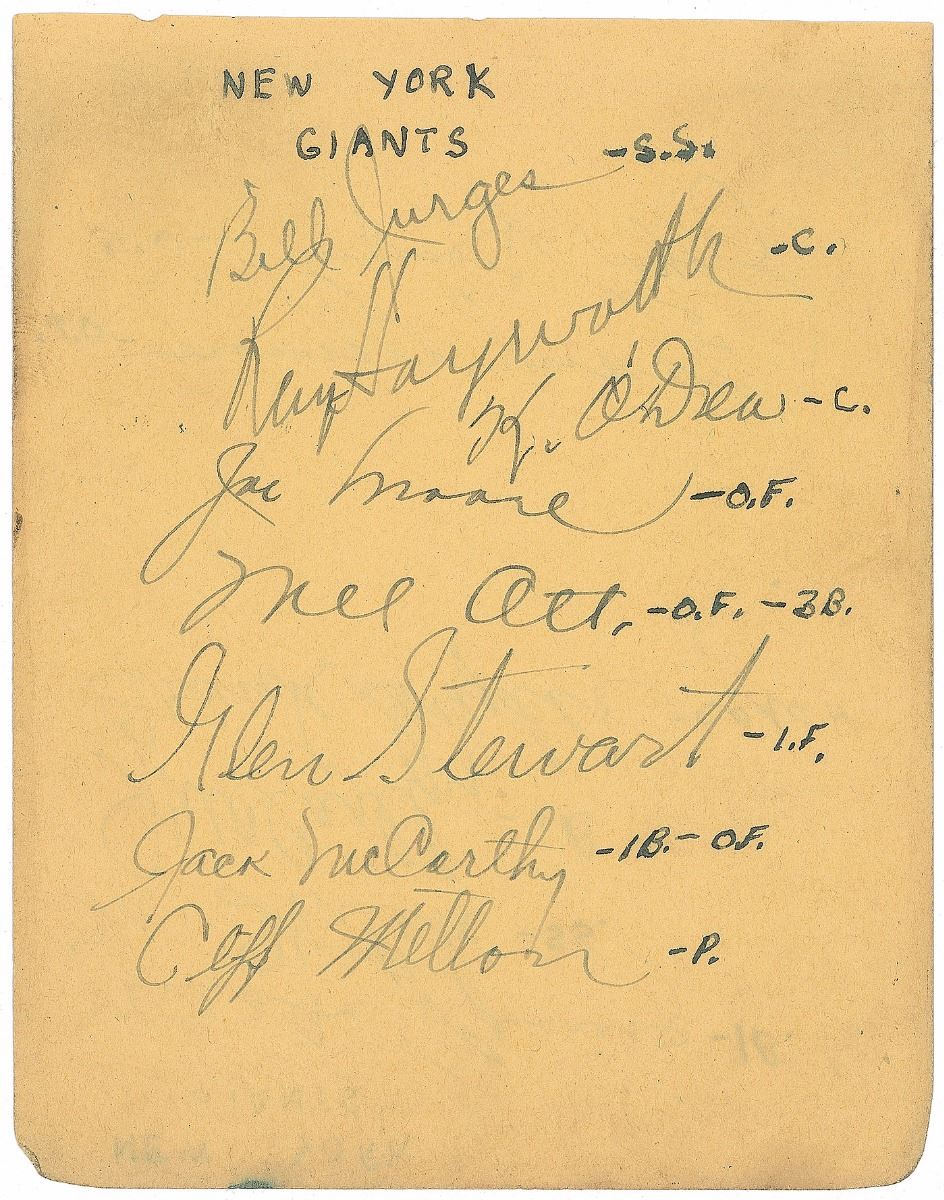 NEW YORK
GIANTS
Bill Jurges -S.S.
Ray Hayworth -C.
K. O'Dea -C.
Joe Moore -O.F.
Mel Ott, -O.F. -3B.
Glen Stewart -I.F.
Jack McCarthy -1B. - OF.
Cliff Melton -P.